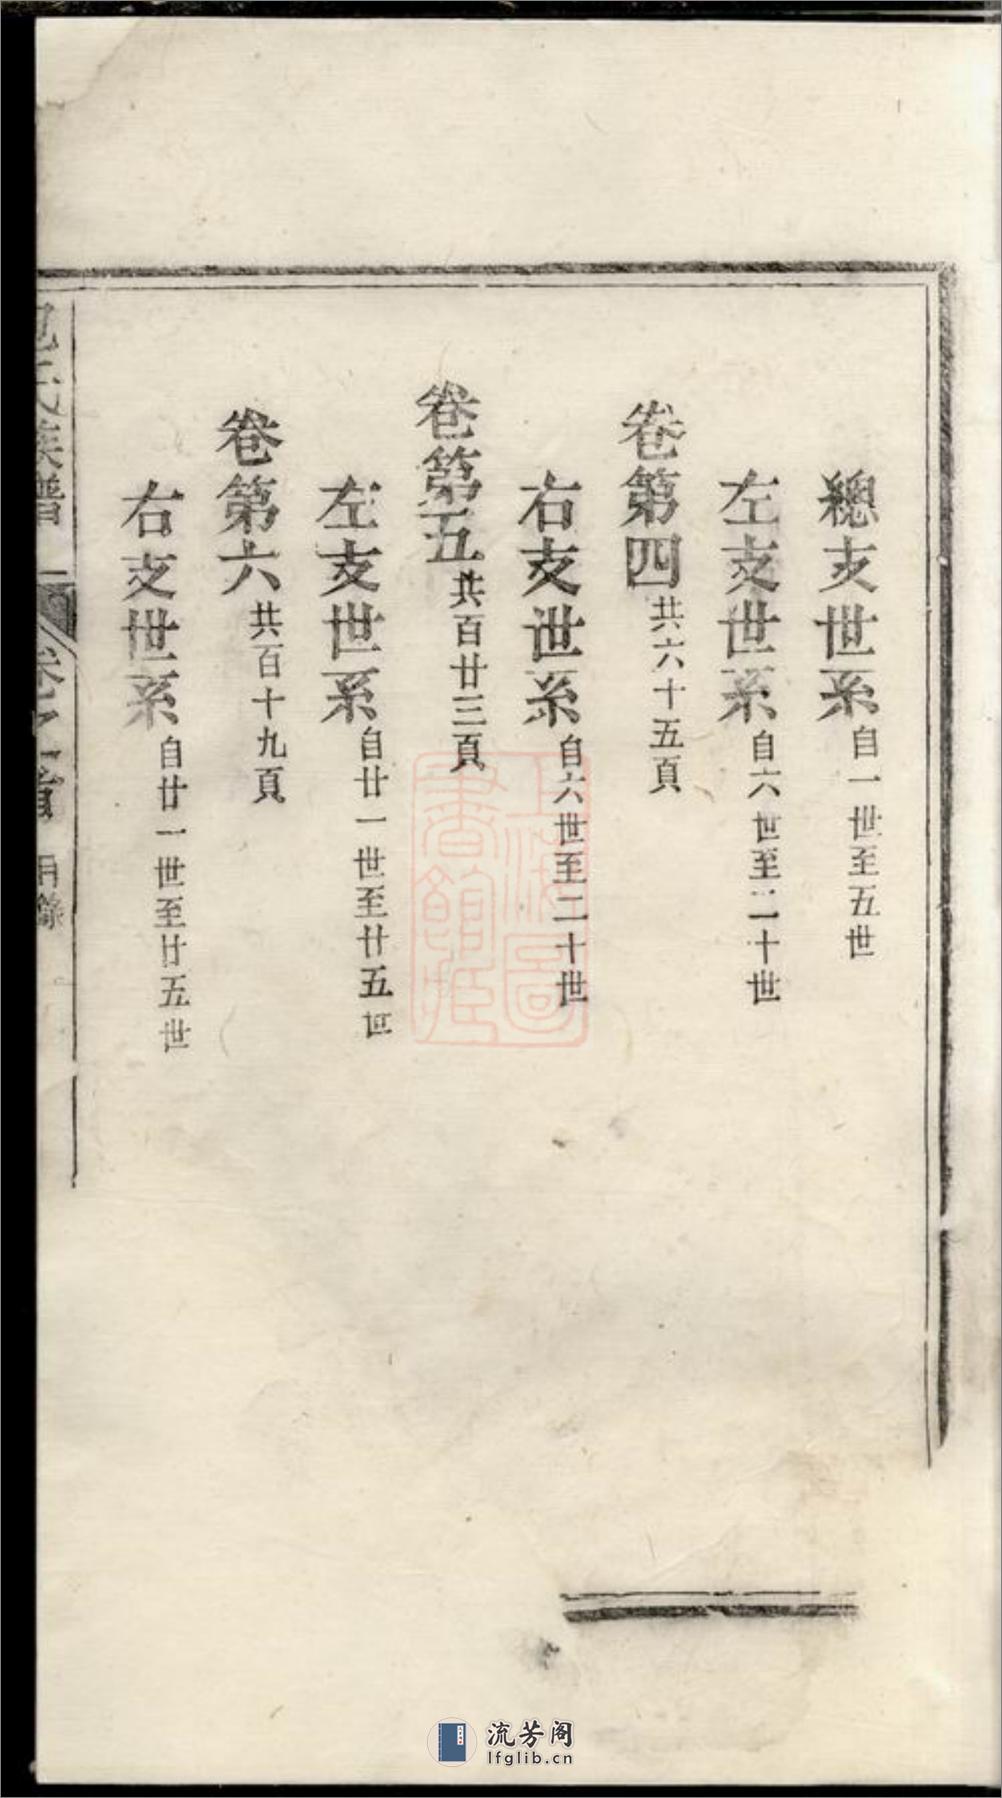 總支世系自一世至五世
左支世系自六世至二十世
卷第四共六十五頁
右支世系自六世至二十世
卷第五共百廿三頁
左支世系自廿一世至廿五世
卷第六共百十九頁
右支世系自廿一世至廿五世
氏族譜
卷之首 目錄
上海圖書館藏
流芳阁
lfglib.cn